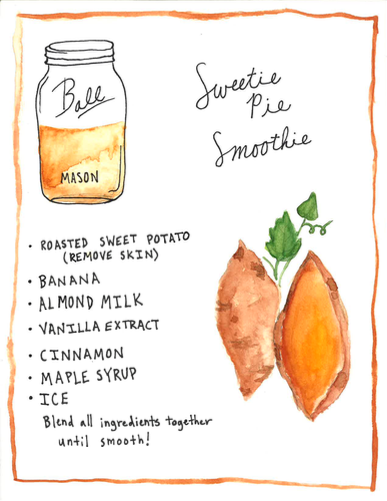 Ball
MASON
Sweetie
Pie
Smoothie
• ROASTED SWEET POTATO
(REMOVE SKIN)
• BANANA
• ALMOND MILK
• VANILLA EXTRACT
• CINNAMON
• MAPLE SYRUP
• ICE
Blend all ingredients together
until smooth!